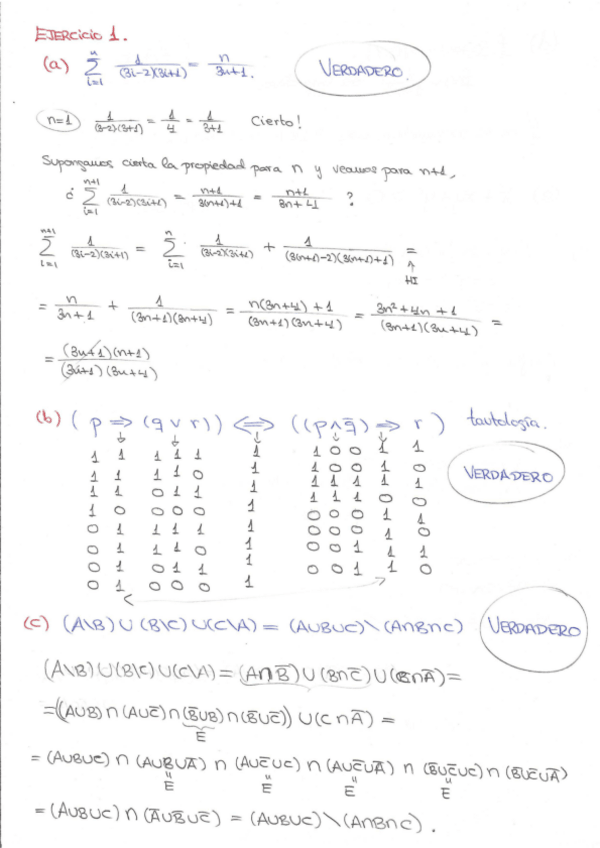 EJERCICIO 1.
(a) n ∑ i=1 1/((3i-2)(3i+1)) = n/(3n+1). VERDADERO.
n=1 1/((3-2)(3+1)) = 1/4 = 1/(3+1) Cierto!
Supongamos cierta la propiedad para n y veamos para n+1,
¿ n+1 ∑ i=1 1/((3i-2)(3i+1)) = (n+1)/(3(n+1)+1) = (n+1)/(3n+4) ?
n+1 ∑ i=1 1/((3i-2)(3i+1)) = n ∑ i=1 1/((3i-2)(3i+1)) + 1/((3(n+1)-2)(3(n+1)+1)) =
↑
HI
= n/(3n+1) + 1/((3n+1)(3n+4)) = (n(3n+4)+1)/((3n+1)(3n+4)) = (3n²+4n+1)/((3n+1)(3n+4)) =
= ((3n+1)(n+1))/((3n+1)(3n+4))
(b) ( p ⇒ (q ∨ r)) ⇔ ((p ∧ q̄) ⇒ r ) tautología.
VERDADERO
1 1 1 1 1 1 1 0 0 1 1
1 1 1 1 0 1 1 0 0 1 0
1 1 0 1 1 1 1 1 1 1 1
1 0 0 0 0 1 1 1 1 0 0
0 1 1 1 1 1 0 0 0 1 1
0 1 1 1 0 1 0 0 0 1 0
0 1 0 1 1 1 0 0 1 1 1
0 1 0 0 0 1 0 0 1 1 0
(c) (A\B) ∪ (B\C) ∪ (C\A) = (A∪B∪C) \ (A∩B∩C) VERDADERO
(A\B) ∪ (B\C) ∪ (C\A) = (A∩B̄) ∪ (B∩C̄) ∪ (C∩Ā) =
= ((A∪B) ∩ (A∪C̄) ∩ (B̄∪B) ∩ (B̄∪C̄)) ∪ (C∩Ā) =
E
= (A∪B∪C) ∩ (A∪B∪Ā) ∩ (A∪C̄∪C) ∩ (A∪C̄∪Ā) ∩ (B̄∪C̄∪C) ∩ (B̄∪C̄∪Ā)
= = = =
E E E E
= (A∪B∪C) ∩ (Ā∪B̄∪C̄) = (A∪B∪C) \ (A∩B∩C).